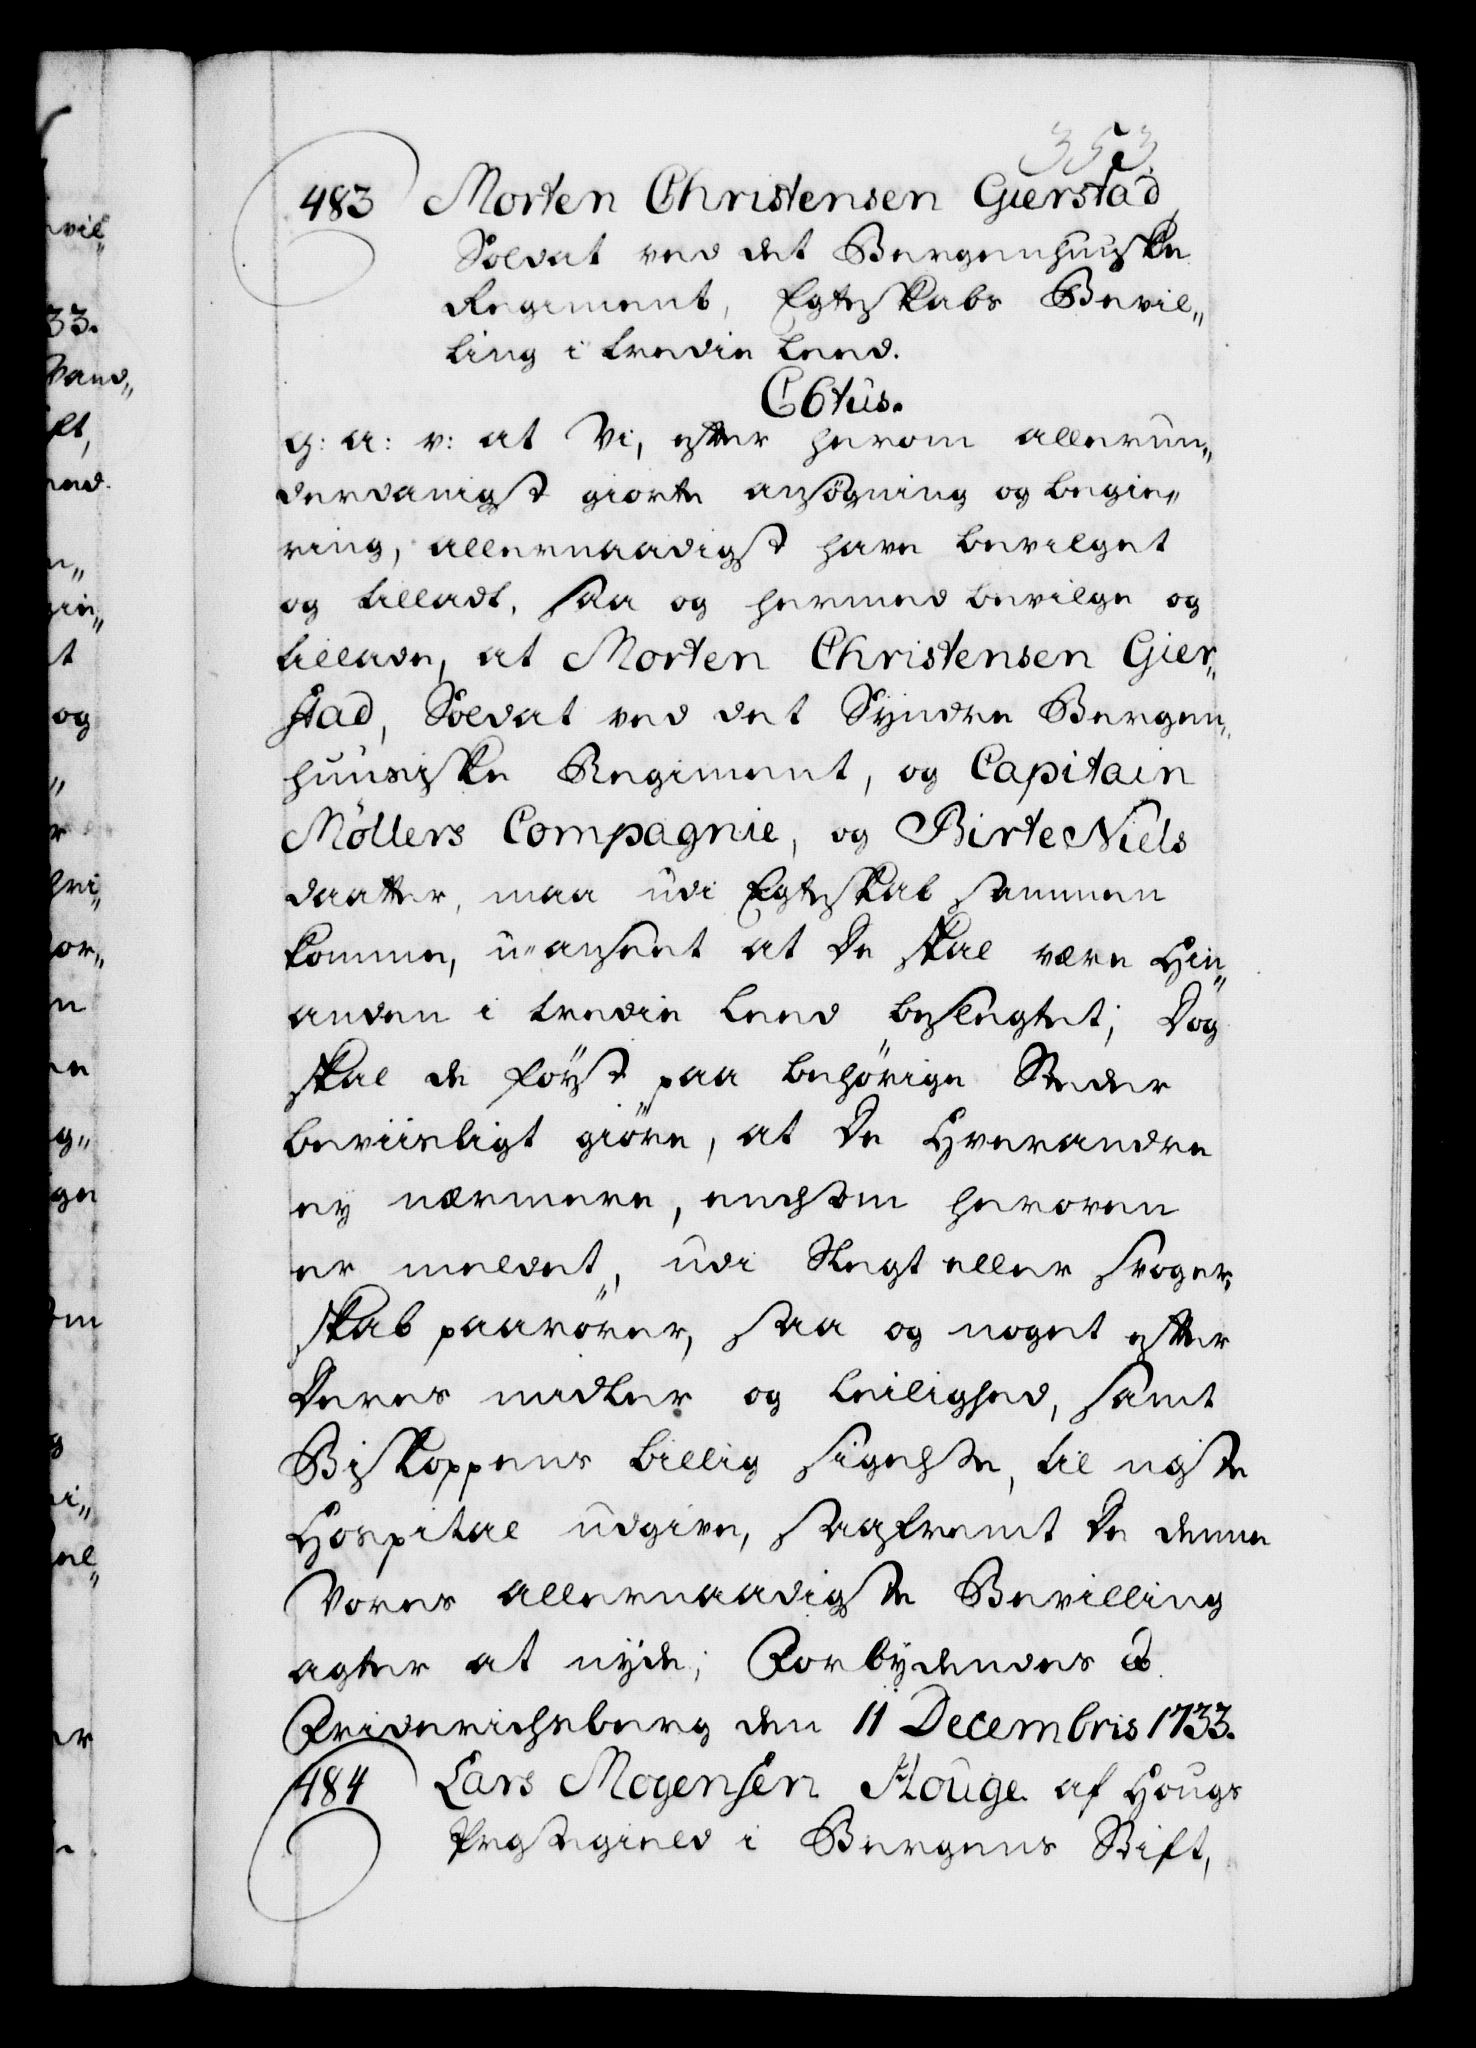 353.
483 Morten Christensen Gierstad
Soldat ved det Bergenhuuske
Regiment, Egteskabs Bevil„
ling i tredie Leed.
C6tus.
G: A: V: at Vi, efter herom allerun„
derdanigst giorte ansøgning og begie„
ring, allernaadigst have bevilget
og tilladt, saa og hermed bevilge og
tillade, at Morten Christensen Gier„
stad, Soldat ved det Syndre Bergen„
huusiske Regiment, og Capitain
Möllers Compagnie, og Birte Niels
daatter, maa udi Egteskab sammen
komme, u-anseet at De skal være Hin„
anden i tredie Leed beslegtet; Dog
skal de først paa behörige Steder
beviisligt giöre, at De Hverandre
ey nærmere, end som heroven
er meldet, udi Slegt eller Svoger„
skab paarörer, saa og noget efter
Deres midler og Leilighed, samt
Biskoppens billig sigelse, til neste
Hospital udgive, saafremt De denne
Vores allernaadigste Bevilling
agter at nyde; Forbydendes &
Friderichsberg den 11 Decembris 1733.
484 Lars Mogensen Houge af Hougs
Prestegield i Bergens Stift,
vil„
33.
Vand„
og
hri„
or„
ge
er